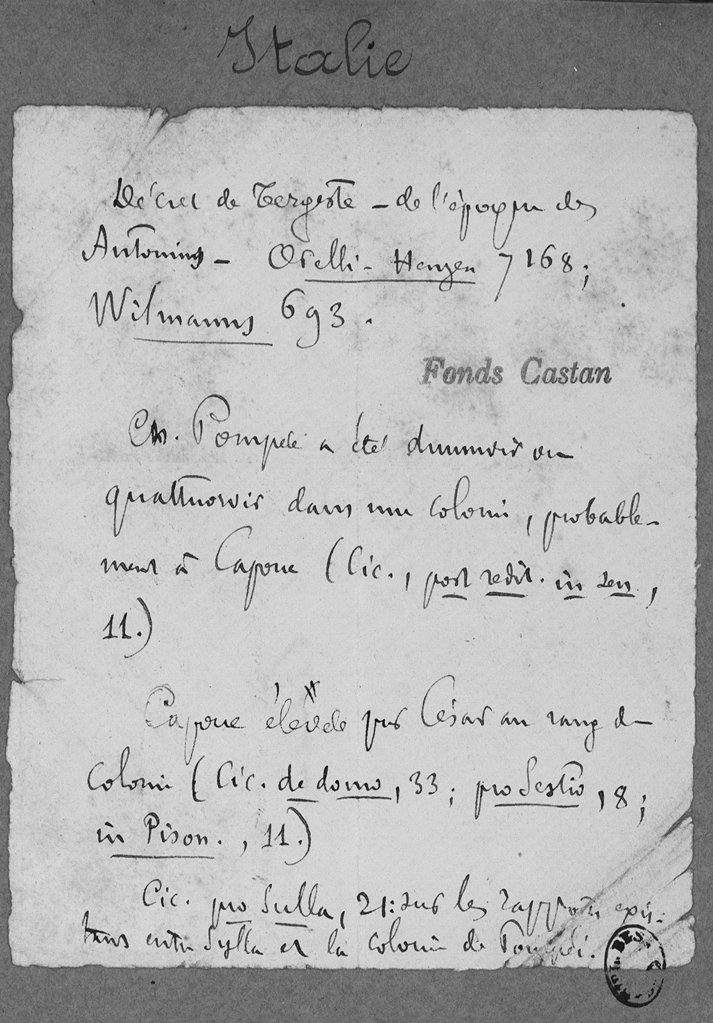 Italie
Décret de Tergeste – de l'époque des
Antonins – Orelli-Henzen 7168;
Wilmanns 693.
Fonds Castan
Cn. Pompée a été duumvir ou
quattuorvir dans une colonie, probable-
ment à Capoue (Cic., post redit. in sen,
11.)
Capoue élevée par César au rang de
colonie (Cic. de domo, 33; pro Sestio, 8;
in Pison., 11.)
Cic. pro Sulla, 21: sur les rapports exis-
tans entre Sylla et la colonie de Pompéi.
BES